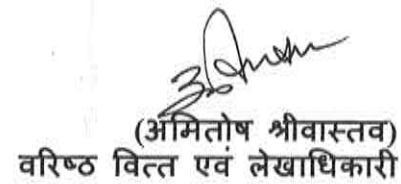 (अमितोष श्रीवास्तव)
वरिष्ठ वित्त एवं लेखाधिकारी